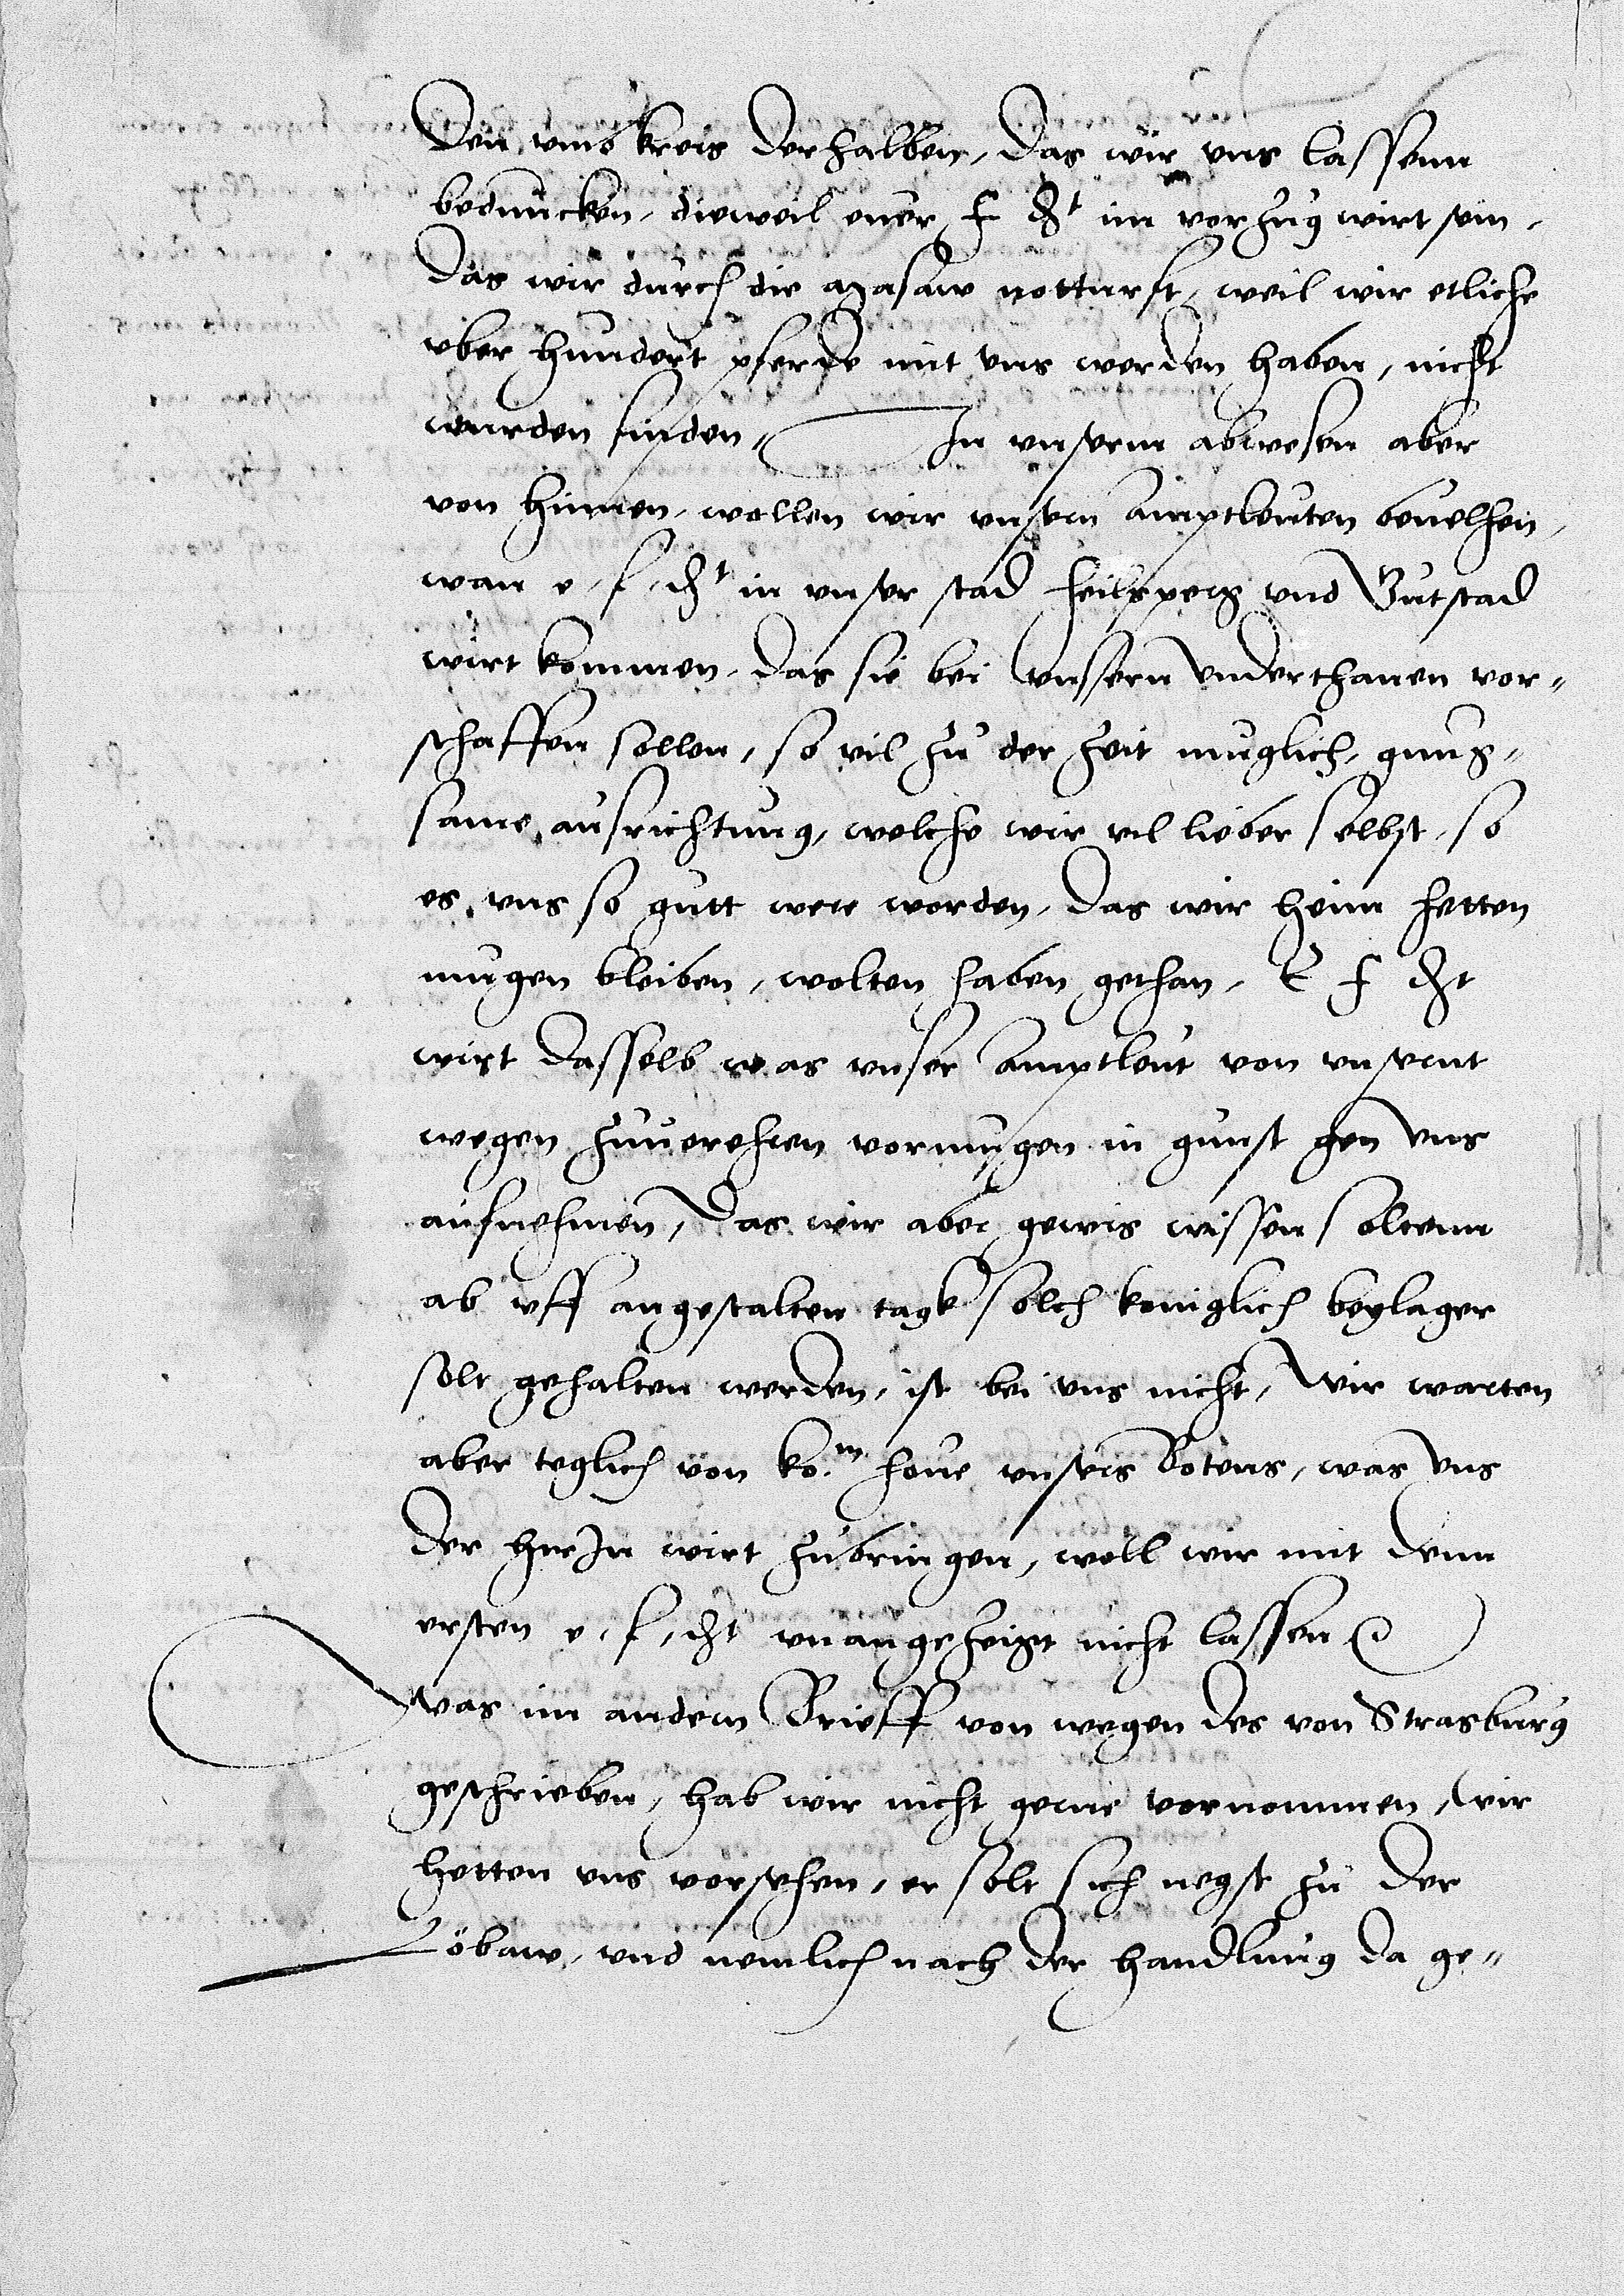 den vmbkreis derhalben, das wir vns lassenn
beduncken, dieweil euer f dt im vorzug wirt sein,
das wir durch die Masaw notturft, weil wir etliche
vber hundert pferde mit vns werden haben, nicht
wurden finden, In vnserm abwesen aber
von hinnen, wollen wir vnsern amptleuten beuelhen,
wan e, f, dt in vnser stad heilsperg vnd Gutstad
wirt kommen, das sie bei vnssern vnderthanen vor-
schaffen sollen, so vil zu der zeit muglich, gnug-
same ausrichtung, welche wir vil lieber selbst, so
es vns so gutt were worden, das wir heim hetten
mugen bleiben, wolten haben gethan, E f dt
wirt dasselb was vnser amptleut von vnsernt
wegen zuuerehren vormugen in gunst gen vns
aufnehmen, Das wir aber gewis wissen soltenn
ab vff angestalten tagk solch koniglich beylager
solt gehalten werden, ist bei vns nicht, Wir warten
aber teglich von ko.m houe vnsers Botens, was vns
der hirJn wirt zubringen, woll wir mit denn
ersten e, f, dt vnangezeigt nicht lassen
Was im andern Brieff von wegen des von Strasburg
geschrieben, hab wir nicht gerne vornommen, Wir
hetten vns vorsehen, er solt sich negst zu der
Löbaw, vnd nemlich nach der handlung da ge-